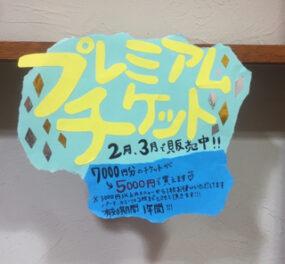 プレミアム
チケット
2月、3月で販売中!!
7000円分のチケットが
5000円で買えます
有効期間 1年間!!!